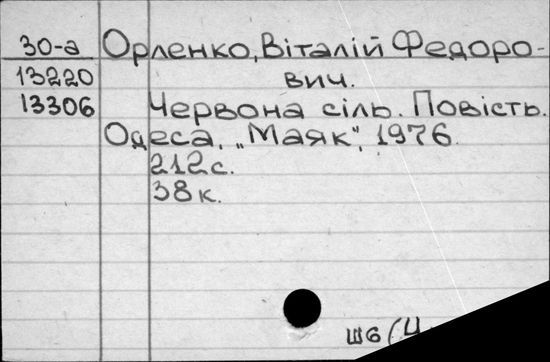 30-а Орленко, Віталій Федоро-
13220 вич.
13306 Червона сіль. Повість.
Одеса, „Маяк", 1976.
212 с.
38 к.
Ш6(4